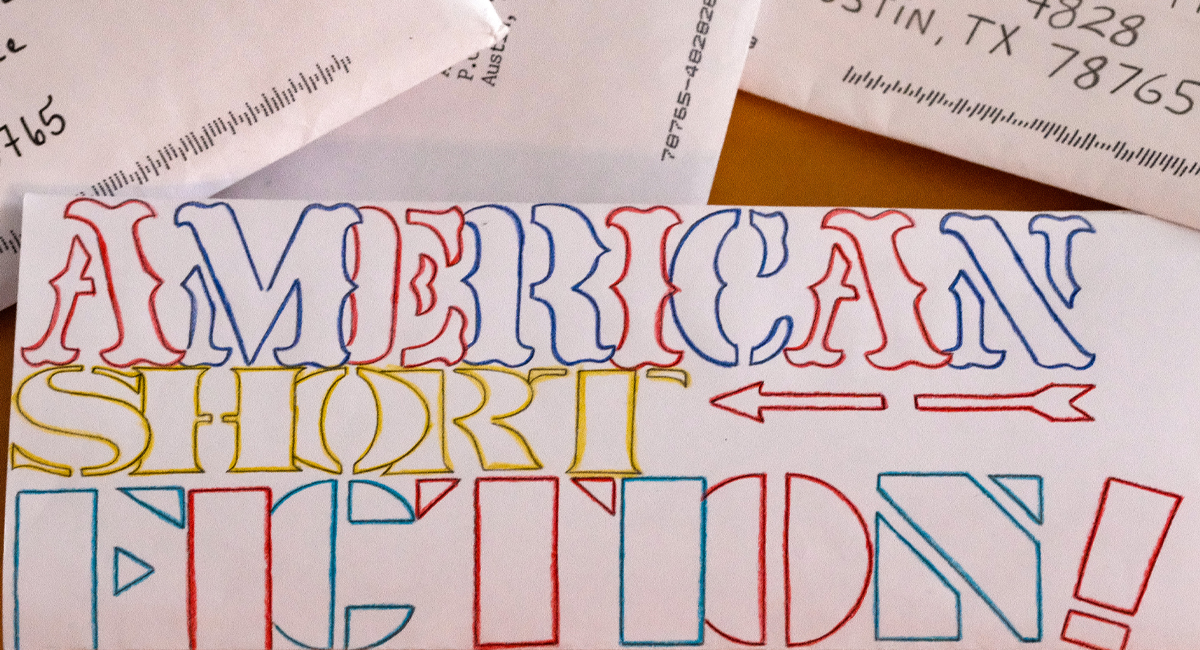 765
P.
Aust
78765-482828
4828
STIN, TX 78765
AMERICAN
SHORT
FICTION!